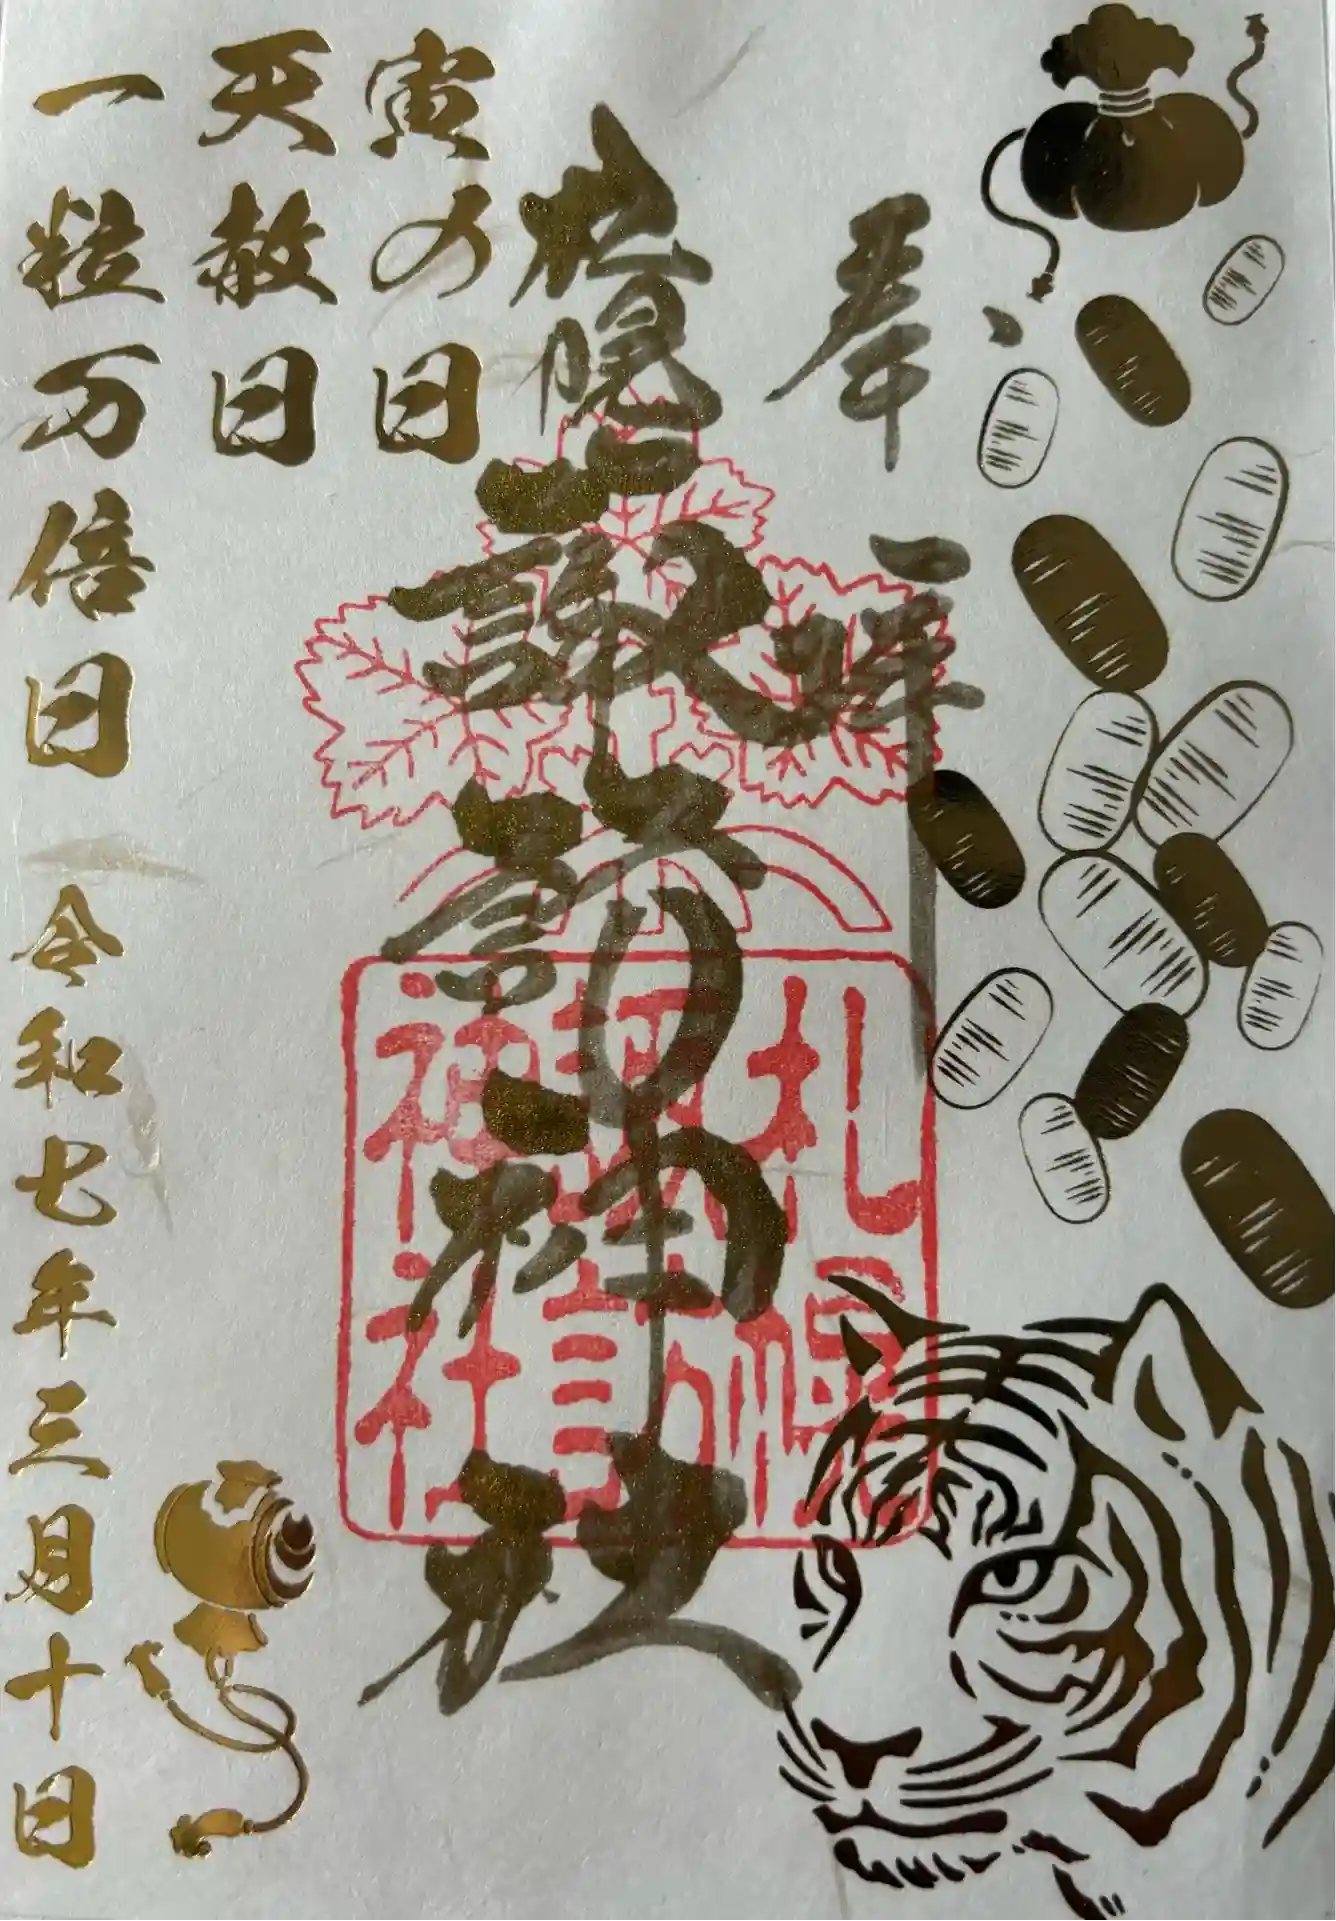 奉拝
札幌諏訪神社
札幌
諏訪
神社
寅の日
天赦日
一粒万倍日 令和七年三月十日